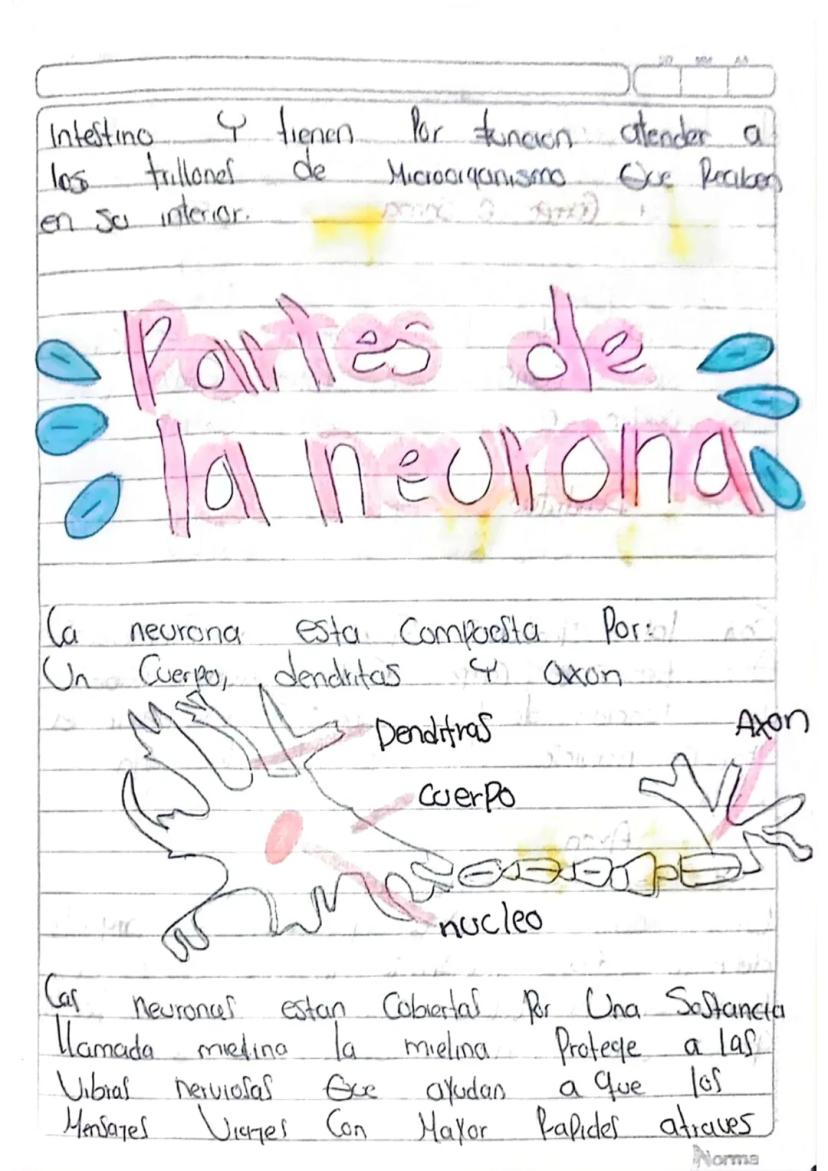 Intestino Y tienen Por funcion atender a
los trillones de Microorganismo Que Reciben
en su interior.
Partes de
la neurona
La neurona esta Compuesta Por:
Un Cuerpo, dendritas Y axon
Denditras
Axon
Cuerpo
nucleo
Las neuronas estan Cobiertas Por Una Sustancia
llamada mielina la mielina Protege a las
Vibras nerviosas Que ayudan a que los
Mensajes Viajes Con Mayor Rapides atraves
Norma